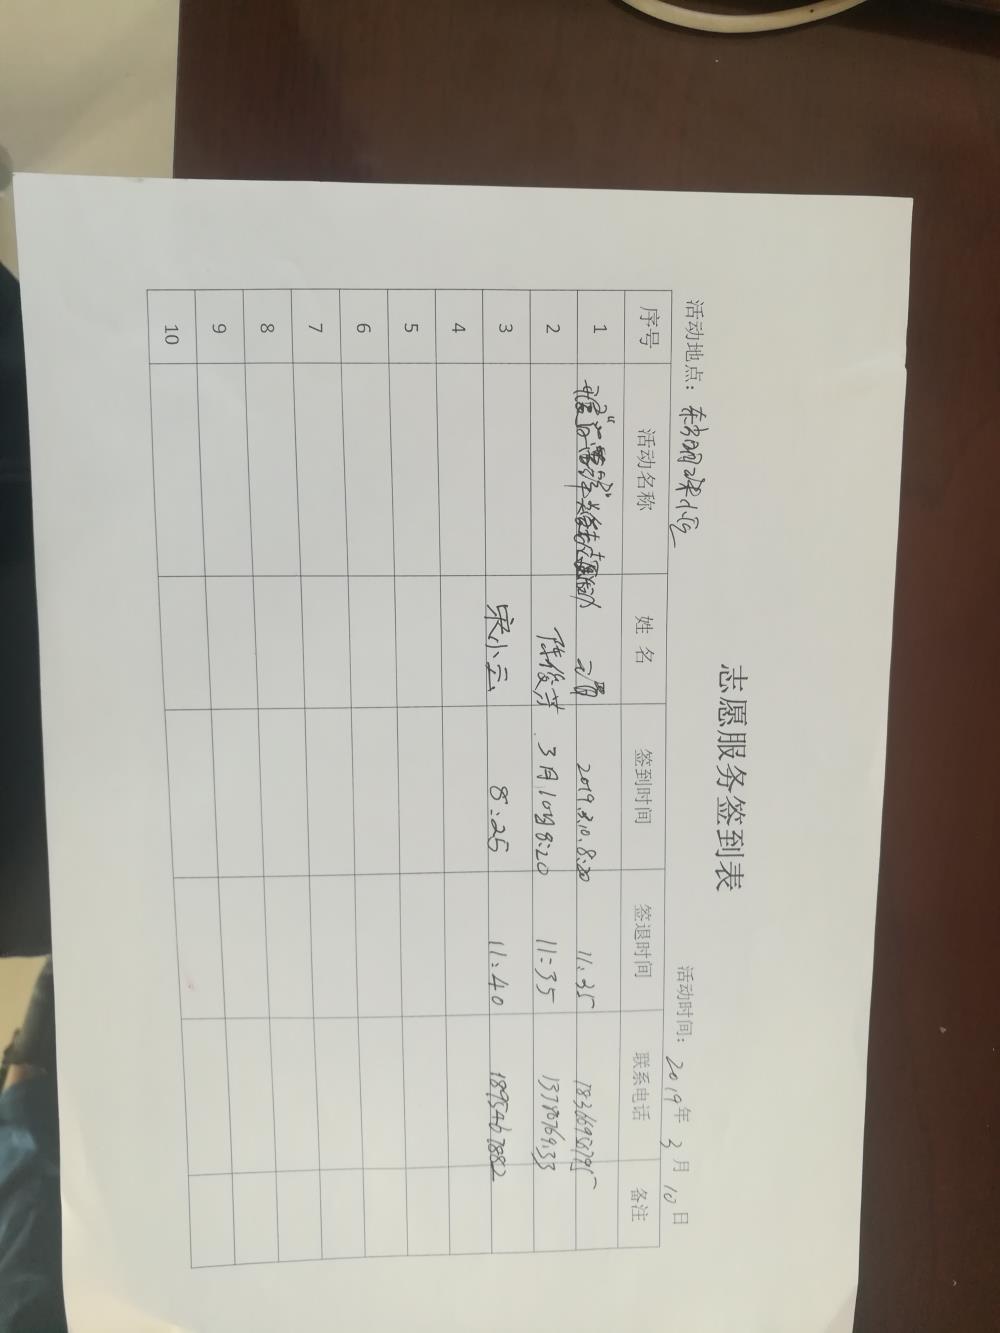 志愿服务签到表
活动地点： 活动时间：2019年3月10日
序号 活动名称 姓名 签到时间 签退时间 联系电话 备注
1 2019.3.10.8:20 11:35
2 陈俊芳 3月10日8:20 11:35
3 宋小云 8:25 11:40 1895467882
4
5
6
7
8
9
10